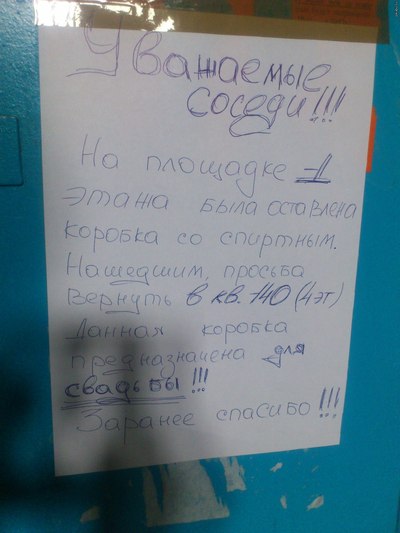 Уважаемые
соседи!!!
На площадке 1
этажа была оставлена
коробка со спиртным.
Нашедшим, просьба
вернуть в кв. 140 (4 эт)
Данная коробка
предназначена для
свадьбы!!!
Заранее спасибо!!!